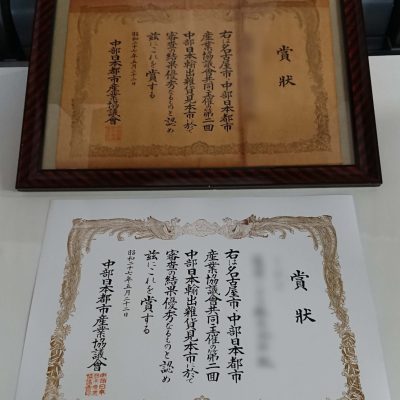 賞狀
右は名古屋市中部日本都市
産業協議會共同主催の第二回
中部日本輸出雜貨見本市に於て
審査の結果優秀なるものと認め
茲にこれを賞する
昭和二十七年五月二十二日
中部日本都市産業協議會
賞狀
右は名古屋市中部日本都市
産業協議會共同主催の第二回
中部日本輸出雜貨見本市に於て
審査の結果優秀なるものと認め
茲にこれを賞する
昭和二十七年五月二十二日
中部日本都市産業協議會